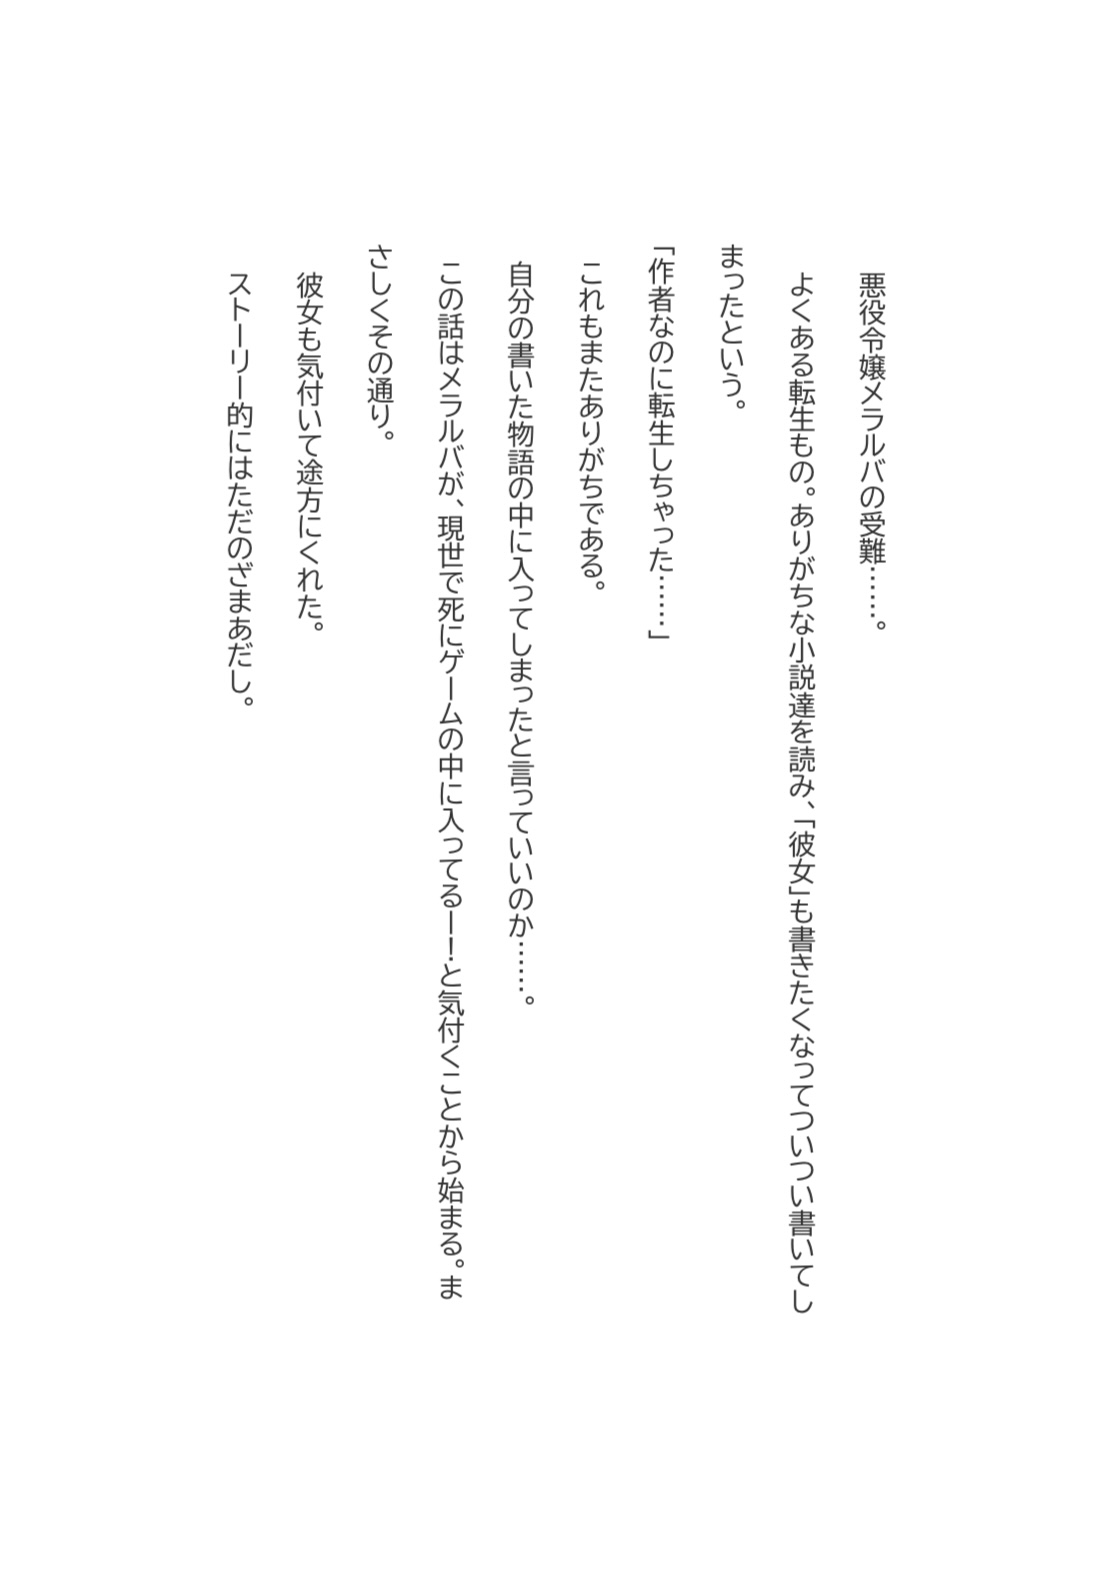 悪役令嬢メラルバの受難……。
よくある転生もの。ありがちな小説達を読み、「彼女」も書きたくなってついつい書いてし
まったという。
「作者なのに転生しちゃった……」
これもまたありがちである。
自分の書いた物語の中に入ってしまったと言っていいのか……。
この話はメラルバが、現世で死にゲームの中に入ってるー！と気付くことから始まる。ま
さしくその通り。
彼女も気付いて途方にくれた。
ストーリー的にはただのざまあだし。